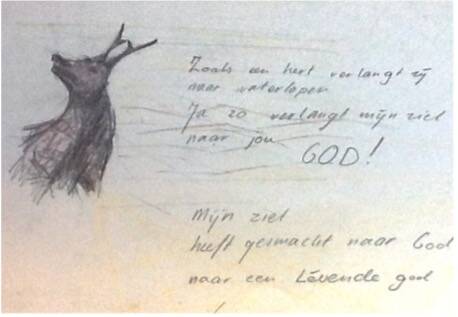 Zoals een hert verlangt zij
naar waterlopen
Ja zo verlangt mijn ziel
naar jou
GOD!
Mijn ziel
heeft gesmacht naar God
naar een Lévende god